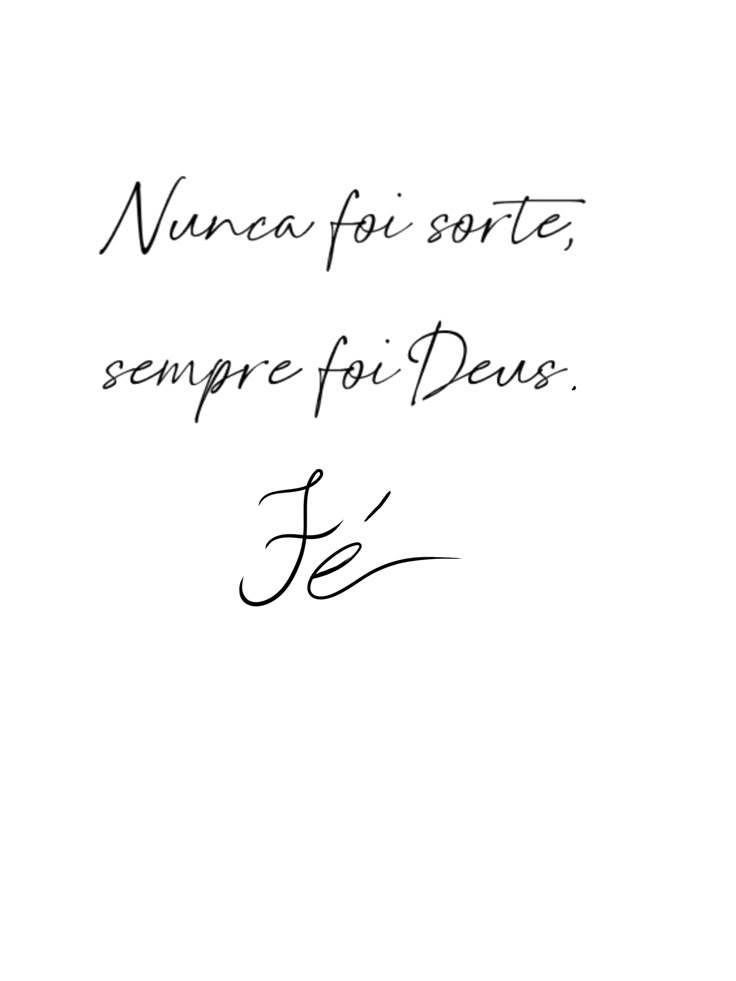 Nunca foi sorte,
sempre foi Deus.
Fé